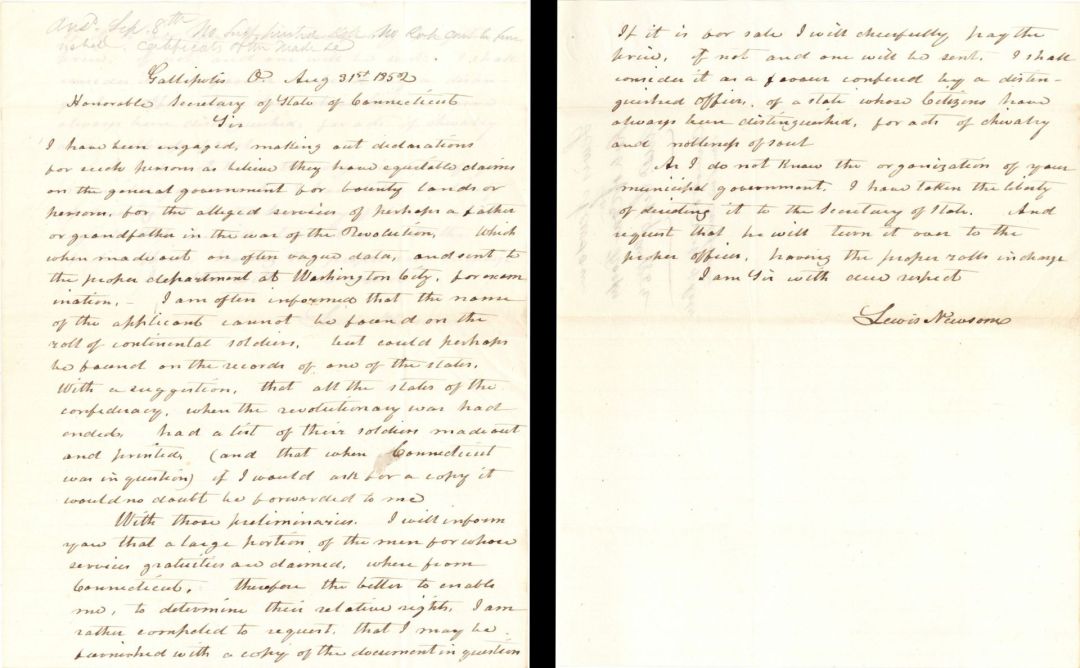 Ansd. Sep. 8th No such printed list No Book can be
Certificate of the made be
Gallipolis O Aug 31st 1852
Honorable Secretary of State of Connecticut
Sir
I have been engaged, making out declarations
for such persons as believe they have equitable claims
on the general government for bounty lands or
persons, for the alleged services of perhaps a father
or grandfather in the war of the Revolution, Which
when made out on often vague data, and sent to
the proper department at Washington City, for exam
ination, - I am often informed that the name
of the applicant cannot be found on the
roll of continental soldiers, but could perhaps
be found on the records of one of the states,
With a suggestion, that all the states of the
confederacy, when the revolutionary was had
ended, had a list of their soldiers made out
and printed, (and that when Connecticut
was in question) if I would ask for a copy it
would no doubt be forwarded to me
With those preliminaries. I will inform
you that a large portion of the men for whose
services gratuities are claimed, where from
Connecticut, therefore the better to enable
me, to determine their relative rights, I am
rather compeled to request, that I may be
furnished with a copy of the document in question
If it is for sale I will cheerfully pay the
price, if not and one will be sent. I shall
consider it as a favour confered by a distin-
guished officer, of a state whose Citizens have
always been distinguished, for acts of chivalry
and nobleness of soul
As I do not know the organization of your
municipal government. I have taken the liberty
of directing it to the Secretary of State. And
request that he will turn it over to the
proper officer, having the proper rolls in charge
I am Sir with due respect
Lewis Newsom